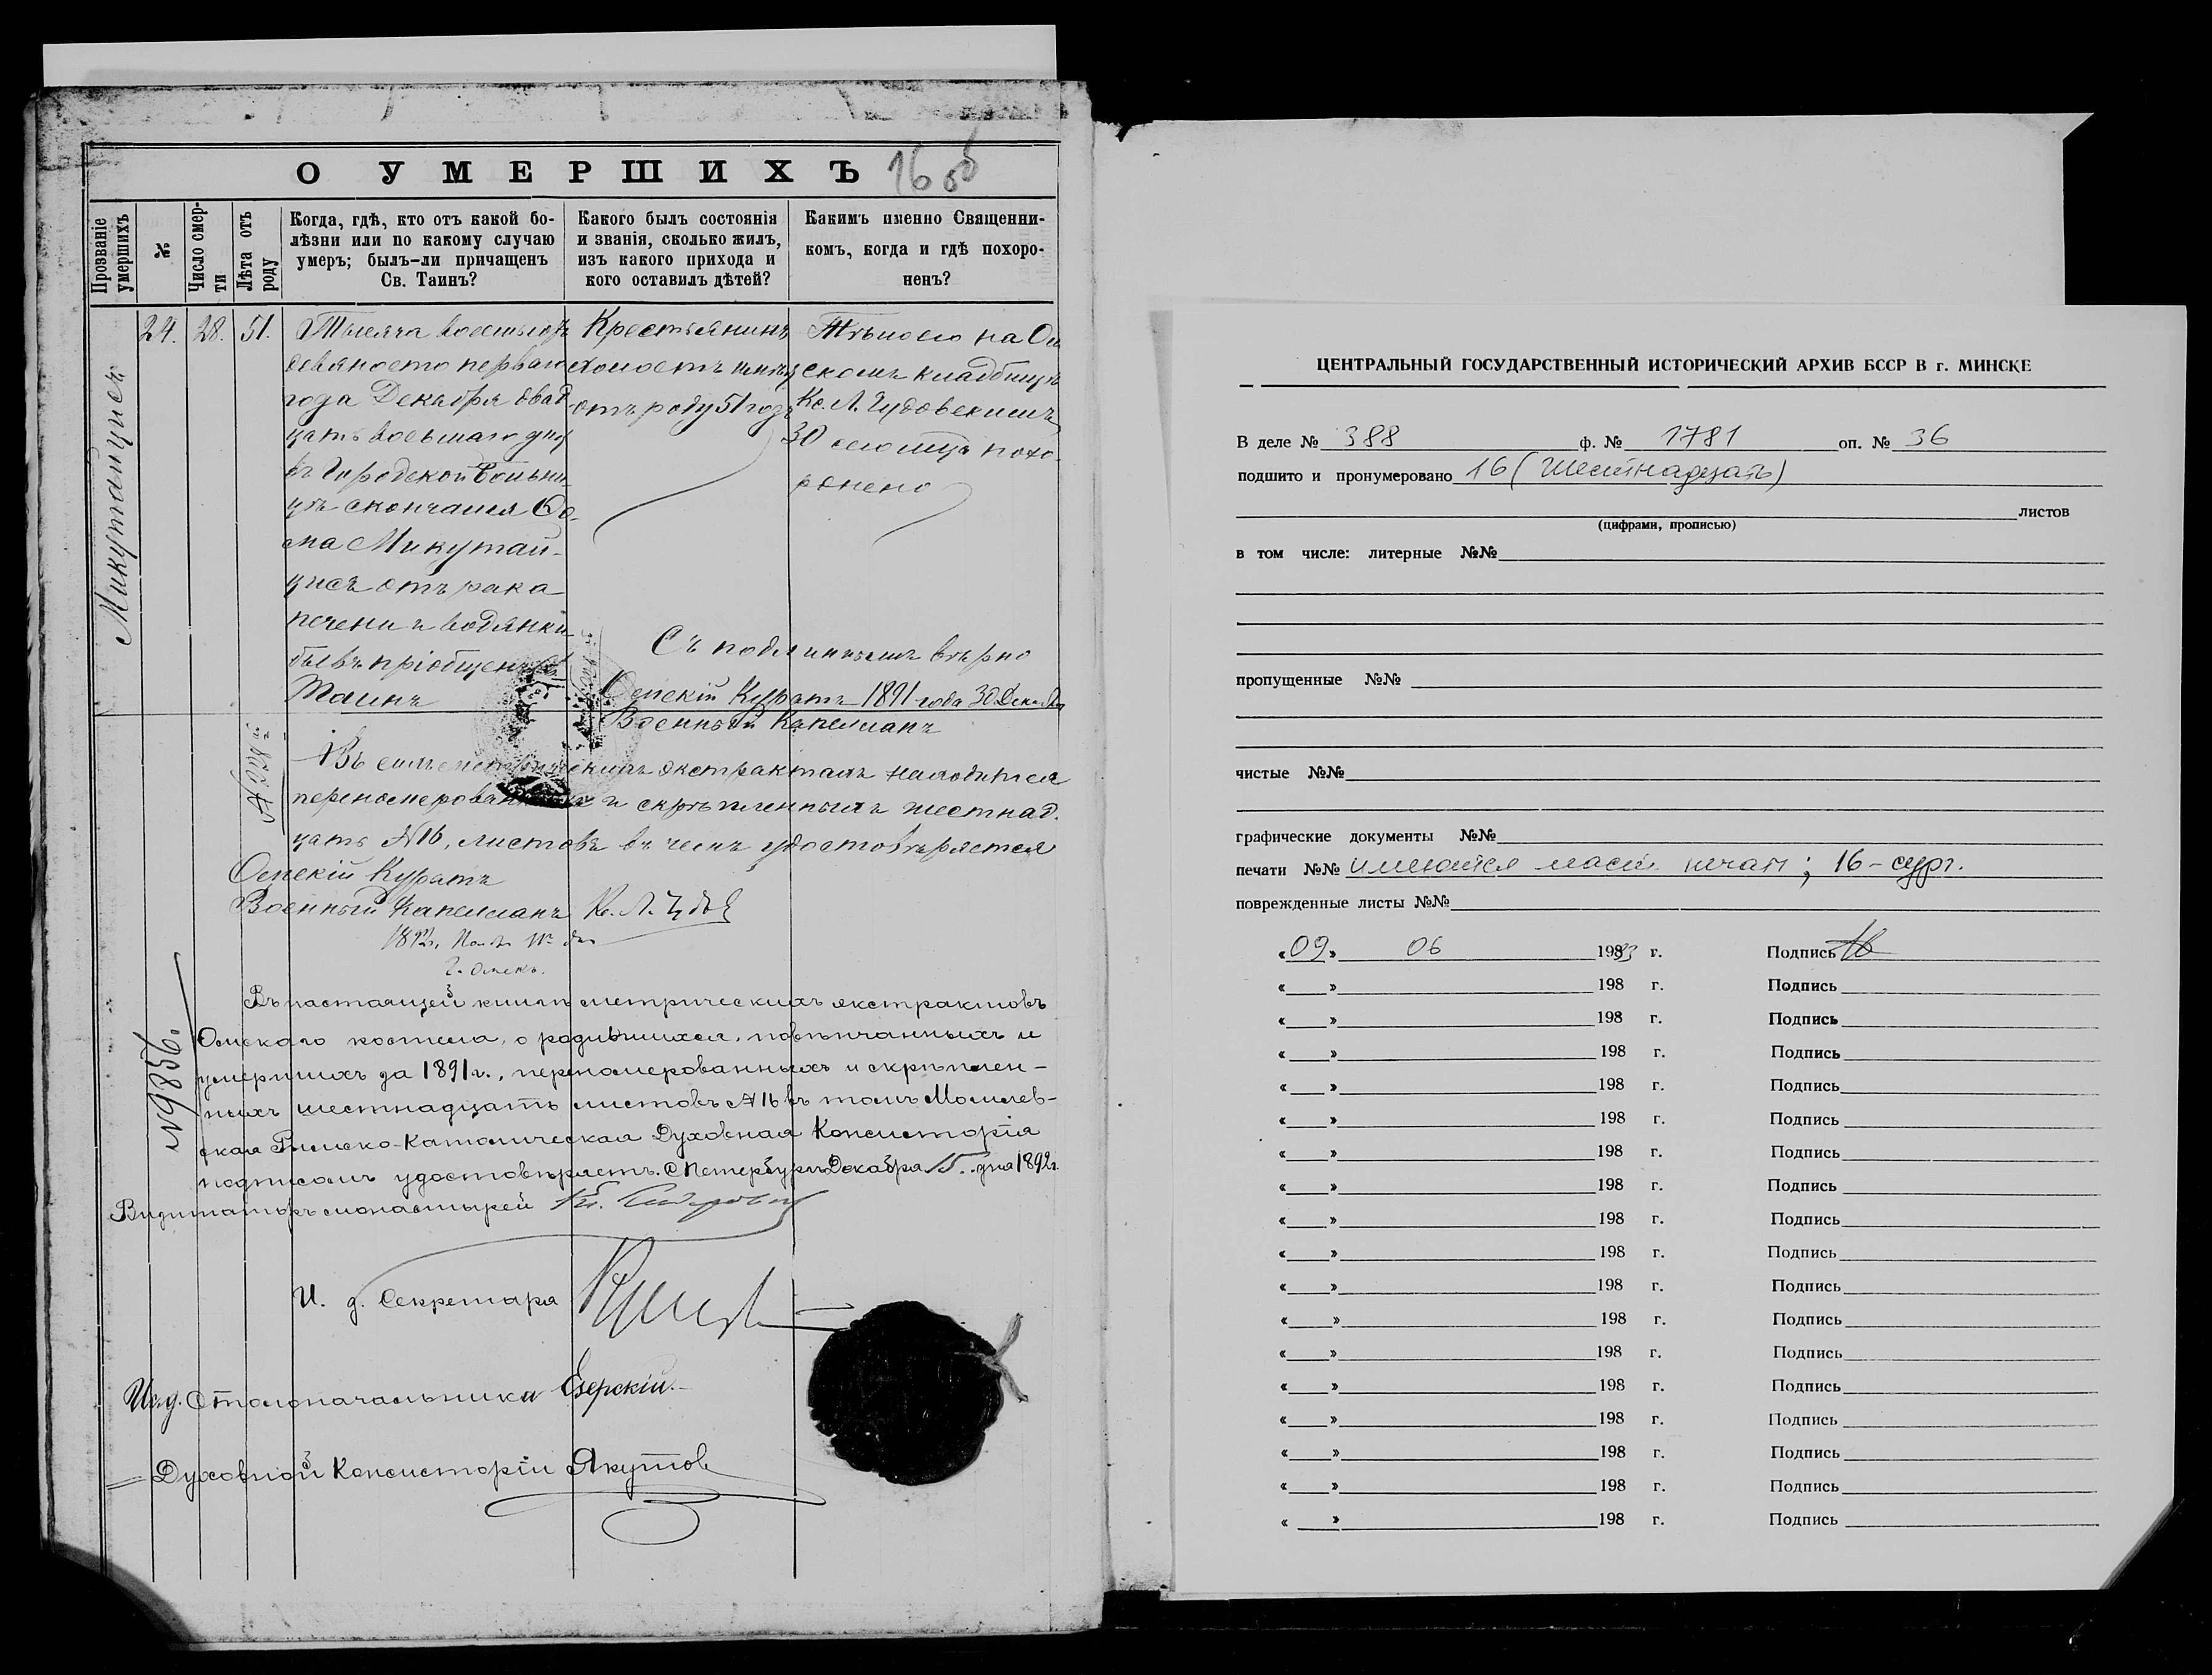 О УМЕРШИХЪ 16 об
Прозваніе умершихъ
№
Число смерти
Лѣта отъ роду
Когда, гдѣ, кто отъ какой бо-
лѣзни или по какому случаю
умеръ; былъ-ли причащенъ
Св. Таинъ?
Какого былъ состоянія
и званія, сколько жилъ,
изъ какого прихода и
кого оставилъ дѣтей?
Какимъ именно Священни-
комъ, когда и гдѣ похоро-
ненъ?
Микутайцисъ
24.
28.
51.
Тысяча восемьсотъ
девяносто перваго
года Декабря двад
цать восьмаго дня
въ Городской больни
цѣ скончался Ѳо-
ма Микутай-
цисъ отъ рака
печени и водянки
бывъ пріобщенъ Св.
Таинъ
Крестьянинъ
холостъ имѣя
отъ роду 51 годъ
Тѣло его на Ом
скомъ кладбищѣ
Кс. Л. Чудовскимъ
30 сего мца похо-
ронено
Съ подлиннымъ вѣрно
Омскій Куратъ 1891 года 30 Декабря
Военный Капелланъ
№ 228
Въ семъ метрическомъ экстрактахъ находится
перенумерованныхъ и скрѣпленныхъ шестнад.
цать №16, листовъ въ чемъ удостовѣряется
Омскій Куратъ
Военный Капелланъ Кс. Л.
г. Омскъ.
№9856.
Въ настоящей книгѣ метрическихъ экстрактовъ
Омскаго костела, о родившихся, повѣнчанныхъ и
умершихъ за 1891 г., перенумерованныхъ и скрѣплен-
ныхъ шестнадцать листовъ №16 въ томъ Могилев-
ская Римско-Католическая Духовная Консисторія
подписомъ удостовѣряетъ. С Петербургъ Декабря 15. дня 1892 г.
Визитаторъ монастырей Кс.
И. д. Секретаря
Ис. д. Столоначальника Езерскій
Духовной Консисторіи Якутов
ЦЕНТРАЛЬНЫЙ ГОСУДАРСТВЕННЫЙ ИСТОРИЧЕСКИЙ АРХИВ БССР В г. МИНСКЕ
В деле № 388 ф. № 1781 оп. № 36
подшито и пронумеровано 16 (Шестнадцать)
листов
(цифрами, прописью)
в том числе: литерные №№
пропущенные №№
чистые №№
графические документы №№
печати №№ имеются маст. печат; 16 - сург.
поврежденные листы №№
«09» 06 1983 г. Подпись
« » 198 г. Подпись
« » 198 г. Подпись
« » 198 г. Подпись
« » 198 г. Подпись
« » 198 г. Подпись
« » 198 г. Подпись
« » 198 г. Подпись
« » 198 г. Подпись
« » 198 г. Подпись
« » 198 г. Подпись
« » 198 г. Подпись
« » 198 г. Подпись
« » 198 г. Подпись
« » 198 г. Подпись
« » 198 г. Подпись
« » 198 г. Подпись
« » 198 г. Подпись